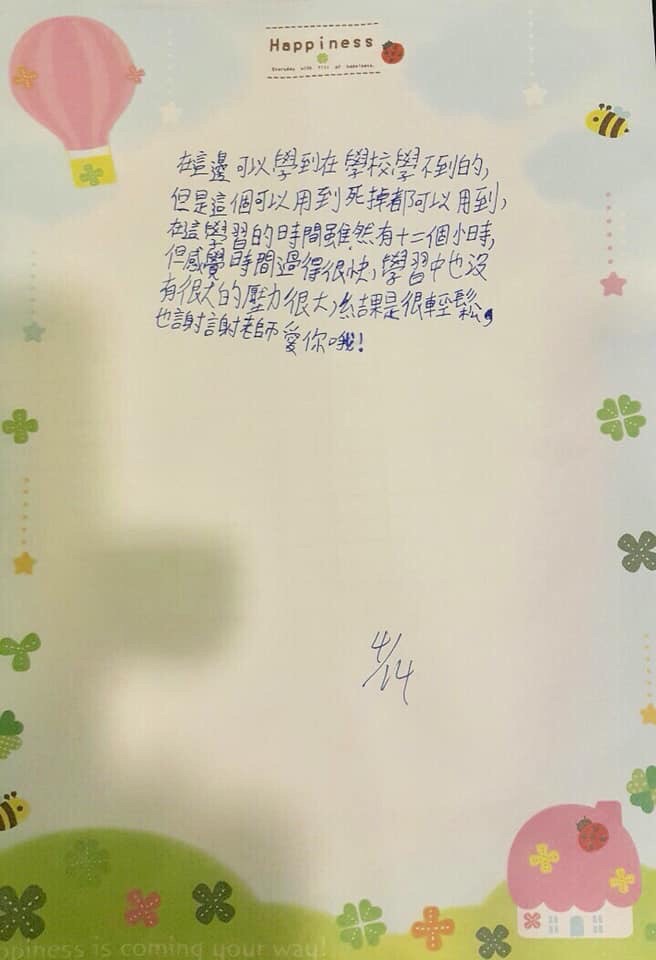 Happiness
Everyday with full of happiness.
在這邊可以學到在學校學不到的,
但是這個可以用到死掉都可以用到,
在這學習的時間雖然有十二個小時,
但感覺時間過得很快,學習中也沒
有很大的壓力很大,結果是很輕鬆,
也謝謝老師愛你哦!
4/14
ppiness is coming your way!